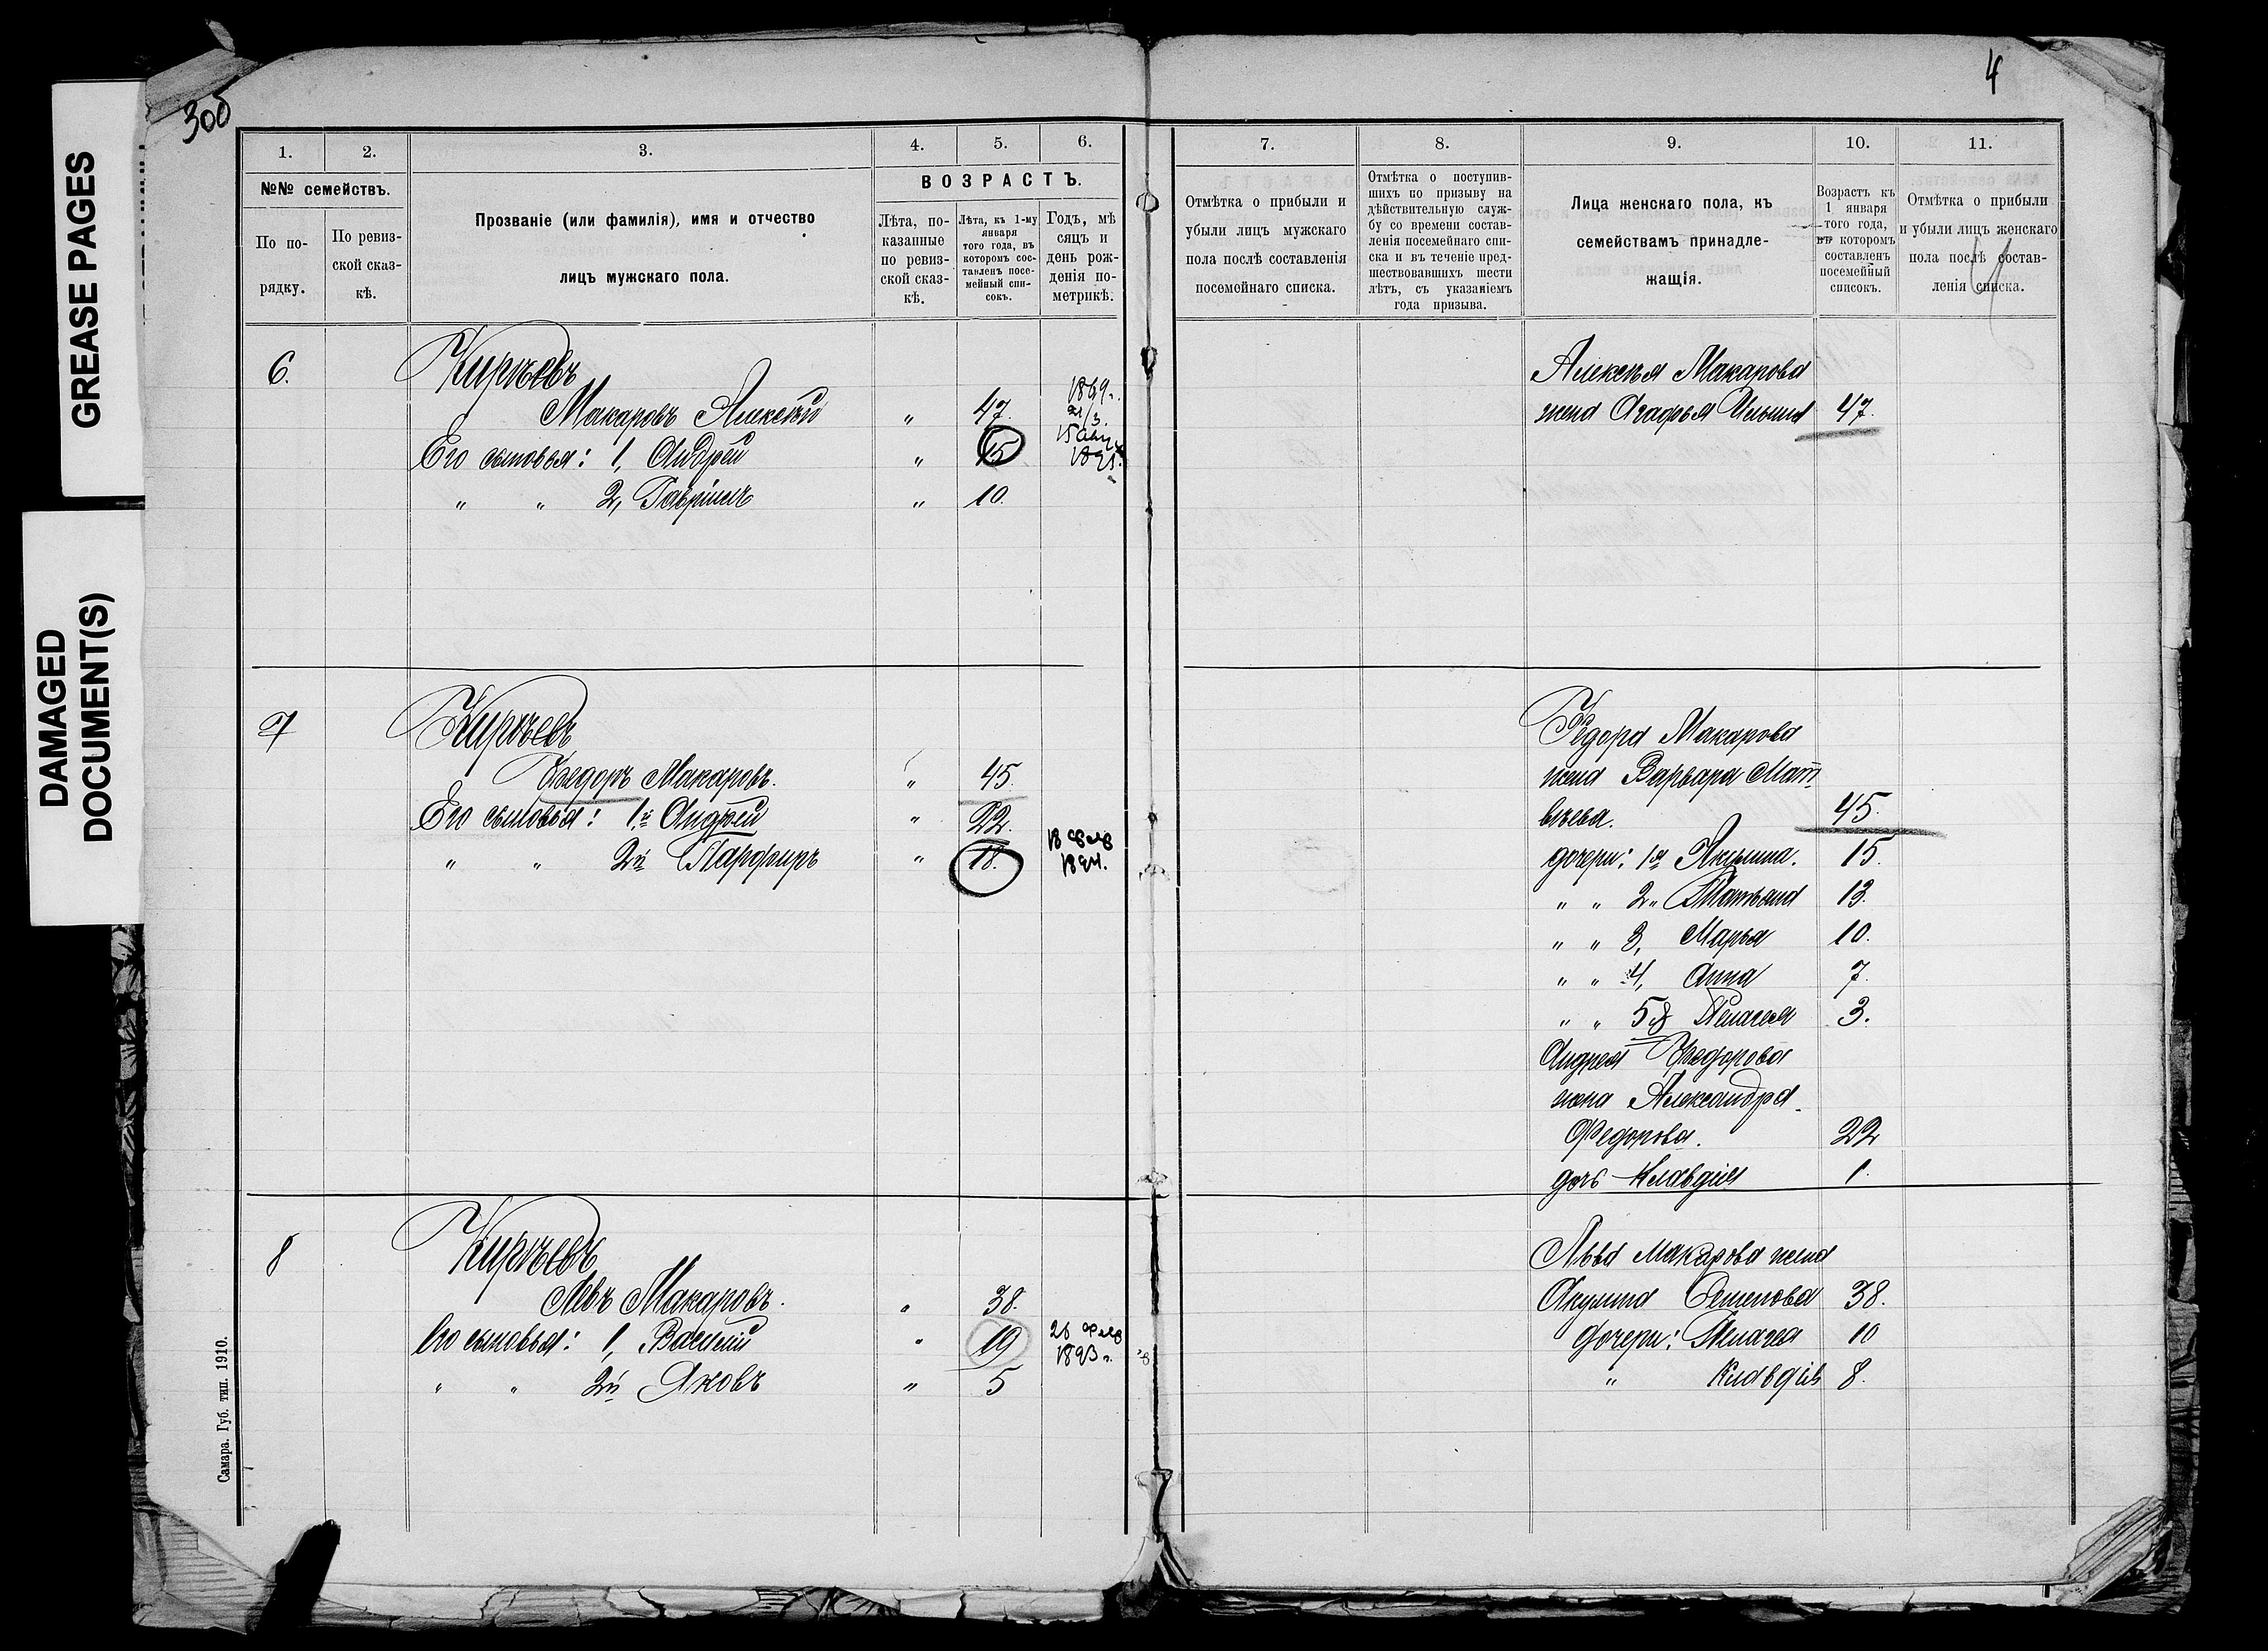 GREASE PAGES
DAMAGED
DOCUMENT(S)
306
1.
2.
3.
4.
5.
6.
№№ семействъ.
По по-
рядку.
По ревиз-
ской сказ-
кѣ.
Прозваніе (или фамилія), имя и отчество
лицъ мужскаго пола.
ВОЗРАСТЪ.
Лѣта, по-
казанные
по ревиз-
ской сказ-
кѣ.
Лѣта, къ 1-му
января
того года, въ
которомъ сос-
тавленъ посе-
мейный спи-
сокъ.
Годъ, мѣ
сяцъ и
день рож-
денія по-
метрикѣ.
6.
Кирѣевъ
Макаровъ Алексѣй " 47. 1869.
Его сыновья: 1, Андрей " 15
" " 2, Гавріилъ " 10.
7
Кирѣевъ
Ѳедоръ Макаровъ. " 45.
Его сыновья: 1й Андрей " 22.
" " 2й Парфиръ " 18. 18 фев 1894.
8
Кирѣевъ
Левъ Макаровъ. " 38.
Его сыновья: 1, Василій " 19 26 фев 1893 г.
" " 2й Яковъ " 5
Самара. Губ. тип. 1910.
4
7.
8.
9.
10.
11.
Отмѣтка о прибыли и
убыли лицъ мужскаго
пола послѣ составленія
посемейнаго списка.
Отмѣтка о поступив-
шихъ по призыву на
дѣйствительную служ-
бу со времени состав-
ленія посемейнаго спи-
ска и въ теченіе пред-
шествовавшихъ шести
лѣтъ, съ указаніемъ
года призыва.
Лица женскаго пола, къ
семействамъ принадле-
жащія.
Возрастъ къ
1 января
того года,
въ которомъ
составленъ
посемейный
списокъ.
Отмѣтка о прибыли
и убыли лицъ женскаго
пола послѣ состав-
ленія списка.
Алексѣя Макарова
жена Агафья Ильина 47.
Ѳедора Макарова
жена Варвара Мат-
вѣева. 45.
дочери: 1я Акулина. 15.
" " 2" Татьяна 13.
" " 3, Марья 10.
" " 4, Анна 7.
" " 5я Пелагея 3.
Андрея Ѳедорова
жена Александра
Федорова. 22
дочь Клавдія 1.
Льва Макарова жена
Акулина Семенова 38.
дочери: Пелагея 10
" Клавдія 8.